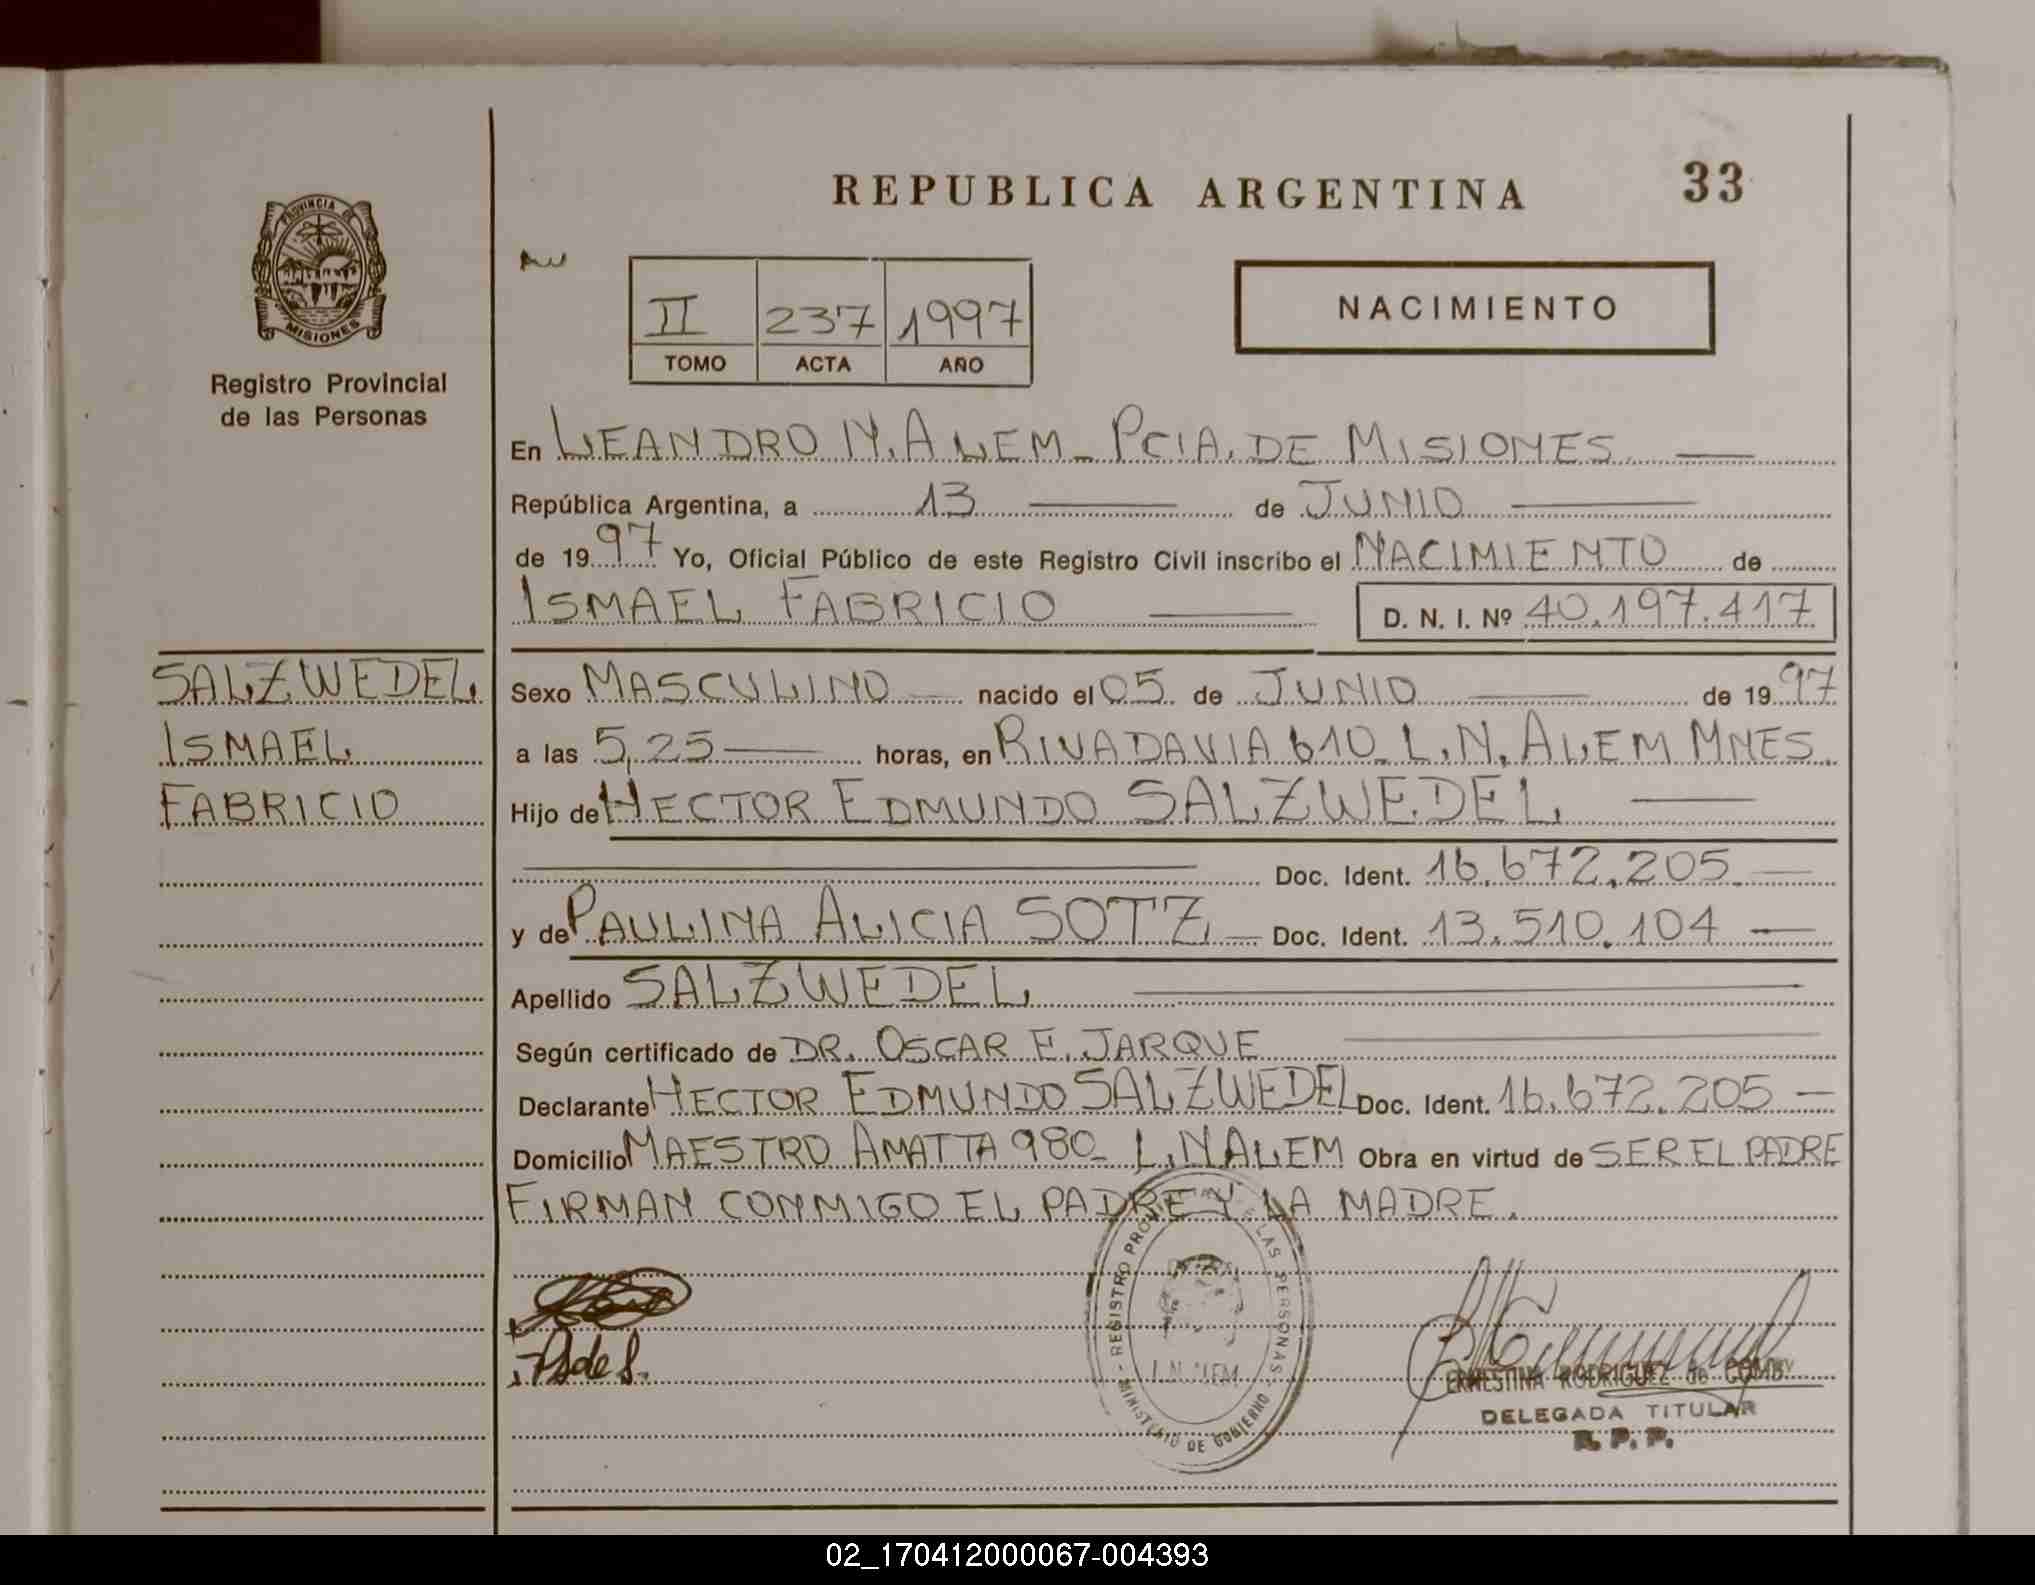 REPUBLICA ARGENTINA
33
PROVINCIA DE
MISIONES
Registro Provincial
de las Personas
II 237 1997
TOMO ACTA AÑO
NACIMIENTO
En LEANDRO N. ALEM - PCIA. DE MISIONES.
República Argentina, a 13 de JUNIO
de 1997 Yo, Oficial Público de este Registro Civil inscribo el NACIMIENTO de
ISMAEL FABRICIO D. N. I. Nº 40.197.417
SALZWEDEL
ISMAEL
FABRICIO
Sexo MASCULINO nacido el 05 de JUNIO de 1997
a las 5,25 horas, en RIVADAVIA 610_ L.N. ALEM MNES.
Hijo de HECTOR EDMUNDO SALZWEDEL
Doc. Ident. 16.672.205
y de PAULINA ALICIA SOTZ Doc. Ident. 13.510.104
Apellido SALZWEDEL
Según certificado de DR. OSCAR E. JARQUE
Declarante HECTOR EDMUNDO SALZWEDEL Doc. Ident. 16.672.205
Domicilio MAESTRO AMATTA 980_ L.N ALEM Obra en virtud de SER EL PADRE
FIRMAN CONMIGO EL PADRE Y LA MADRE.
REGISTRO PROVINCIAL DE LAS PERSONAS
L.N. ALEM
MINISTERIO DE GOBIERNO
ERNESTINA RODRIGUEZ de
DELEGADA TITULAR
R. P. P.
02_170412000067-004393